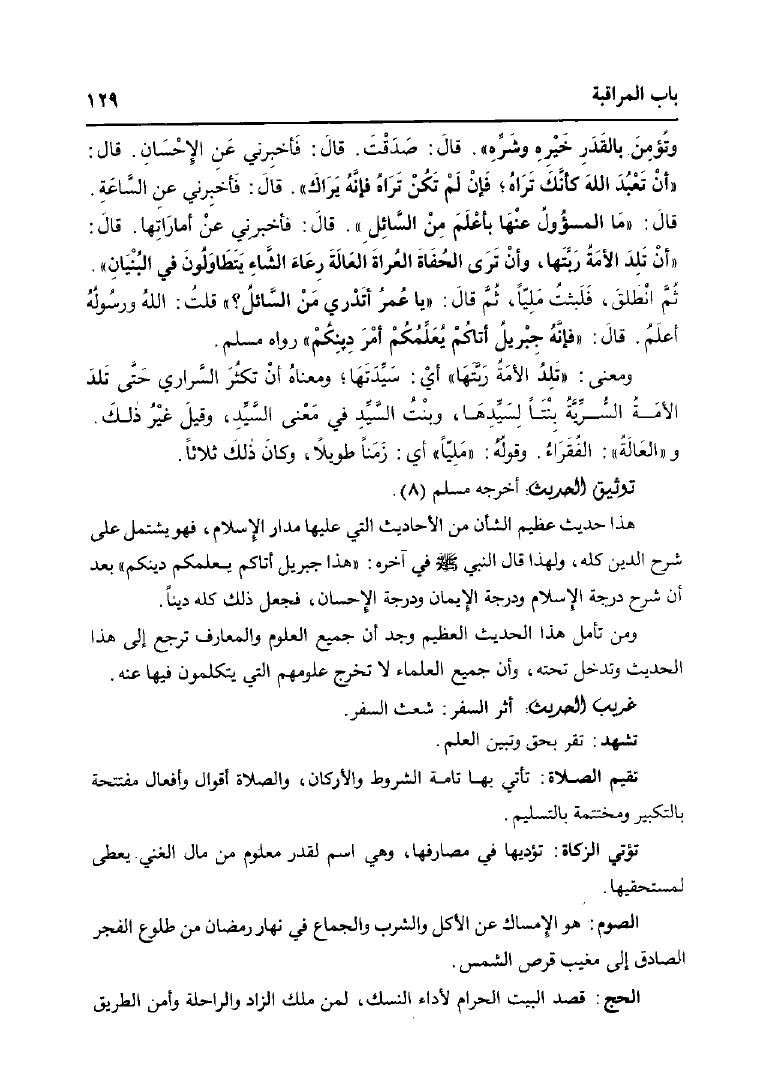 باب المراقبة ١٢٩
وتُؤمِنَ بالقَدَرِ خَيْرِهِ وشَرِّه». قالَ: صَدَقْتَ. قالَ: فَأَخبِرني عَنِ الإِحْسَانِ. قال:
«أنْ تَعْبُدَ اللهَ كأنَّكَ تَراهُ؛ فَإنْ لَمْ تَكُنْ تَراهُ فإنَّهُ يَرَاكَ». قالَ: فَأَخبِرني عن السَّاعَةِ.
قالَ: «مَا المسؤُولُ عَنْها بأَعْلَمَ مِنْ السَّائلِ». قالَ: فأخبِرني عنْ أماراتِها. قالَ:
«أنْ تَلِدَ الأمَةُ رَبَّتَها، وأنْ تَرى الحُفَاةَ العُراةَ العَالَةَ رِعَاءَ الشَّاءِ يَتَطَاولُونَ في البُنْيَانِ».
ثُمَّ انْطَلَقَ، فَلَبثتُ مَلِيّاً، ثُمَّ قالَ: «يا عُمرُ أتَدْري مَنْ السَّائلُ؟» قلتُ: اللهُ ورسُولُهُ
أعلَمُ. قالَ: «فَإنَّهُ جِبْرِيلُ أتاكُمْ يُعَلِّمُكُمْ أمْرَ دِينِكُمْ» رواه مسلم.
ومعنى: «تَلِدُ الأَمَةُ رَبَّتَها» أيْ: سَيِّدَتَهَا؛ ومعناهُ أنْ تكثُرَ السَّراري حَتَّى تَلدَ
الأمَـةُ السُّـرِّيَّةُ بِنْتَـاً لِسَيِّدِهَـا، وبنْتُ السَّيِّدِ في مَعْنى السَّيِّدِ، وقيلَ غَيْرُ ذٰلِكَ.
و «العَالَةُ»: الفُقَراءُ. وقولُهُ: «مَلِيّاً» أي: زَمَناً طويلاً، وكانَ ذٰلكَ ثلاثاً.
توثيق الحديث: أخرجه مسلم (٨).
هذا حديث عظيم الشأن من الأحاديث التي عليها مدار الإسلام، فهو يشتمل على
شرح الدين كله، ولهذا قال النبي ﷺ في آخره: «هذا جبريل أتاكم يعلمكم دينكم» بعد
أن شرح درجة الإسلام ودرجة الإيمان ودرجة الإحسان، فجعل ذلك كله ديناً.
ومن تأمل هذا الحديث العظيم وجد أن جميع العلوم والمعارف ترجع إلى هذا
الحديث وتدخل تحته، وأن جميع العلماء لا تخرج علومهم التي يتكلمون فيها عنه.
غريب الحديث: أثر السفر: شعث السفر.
تشهد: تقر بحق وتبين العلم.
تقيم الصلاة: تأتي بها تامة الشروط والأركان، والصلاة أقوال وأفعال مفتتحة
بالتكبير ومختتمة بالتسليم.
تؤتي الزكاة: تؤديها في مصارفها، وهي اسم لقدر معلوم من مال الغني يعطى
لمستحقيها.
الصوم: هو الإمساك عن الأكل والشرب والجماع في نهار رمضان من طلوع الفجر
الصادق إلى مغيب قرص الشمس.
الحج: قصد البيت الحرام لأداء النسك، لمن ملك الزاد والراحلة وأمن الطريق